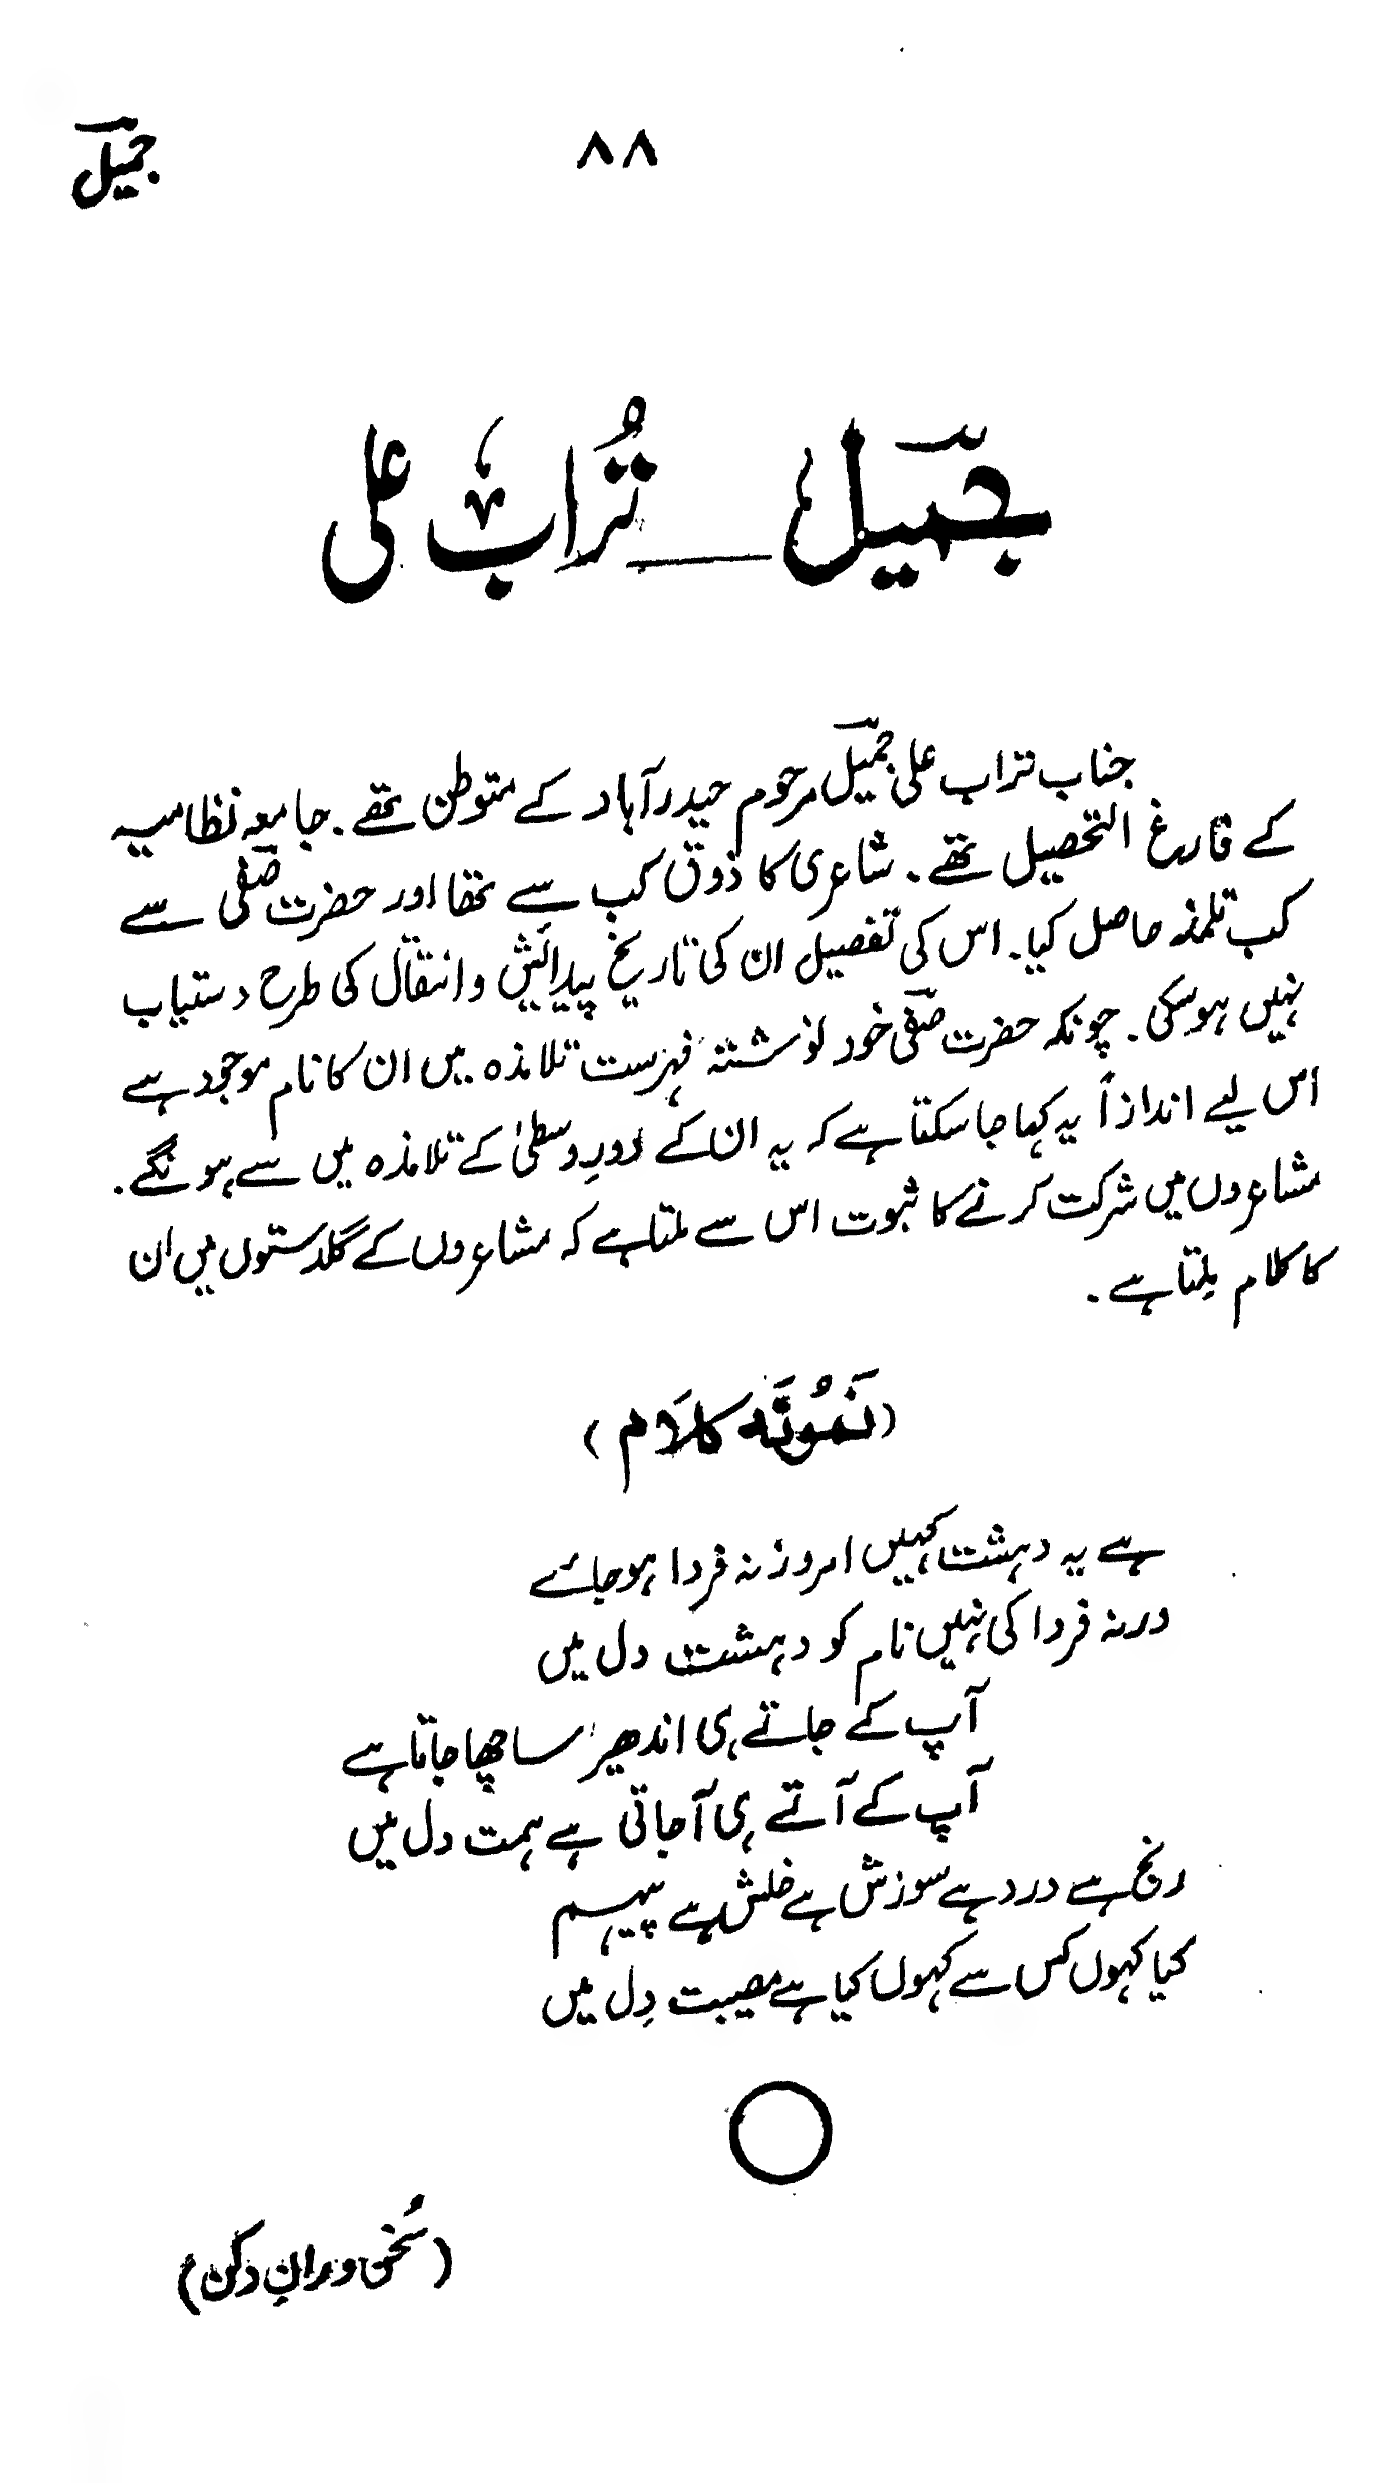 جمیلؔ
۸۸
جمیلؔ ــــ تُراب علی
جناب تراب علی جمیلؔ مرحوم حیدرآباد کے متوطن تھے۔ جامعہ نظامیہ
کے فارغ التحصیل تھے۔ شاعری کا ذوق کب سے تھا اور حضرت صفیؔ سے
کب تلمذ حاصل کیا۔ اس کی تفصیل ان کی تاریخ پیدائش و انتقال کی طرح دستیاب
نہیں ہوسکی۔ چونکہ حضرت صفیؔ خود نوشتہ فہرست تلامذہ میں ان کا نام موجود ہے
اس لیے اندازاً یہ کہا جاسکتا ہے کہ یہ ان کے دورِ وسطیٰ کے تلامذہ میں سے ہونگے۔
مشاعروں میں شرکت کرنے کا ثبوت اس سے ملتا ہے کہ مشاعروں کے گلدستوں میں ان
کا کلام مِلتا ہے۔
(نَمُونَہ کَلَام)
ہے یہ دہشت کہیں امروز نہ فردا ہوجائے
ورنہ فردا کی نہیں نام کو دہشت دل میں
آپ کے جاتے ہی اندھیر سا چھا جاتا ہے
آپ کے آتے ہی آجاتی ہے ہمت دل میں
رنج ہے درد ہے سوزش ہے خلش ہے پیہم
کیا کہوں کس سے کہوں کیا ہے مصیبت دِل میں
(سُخن ورانِ دکن)